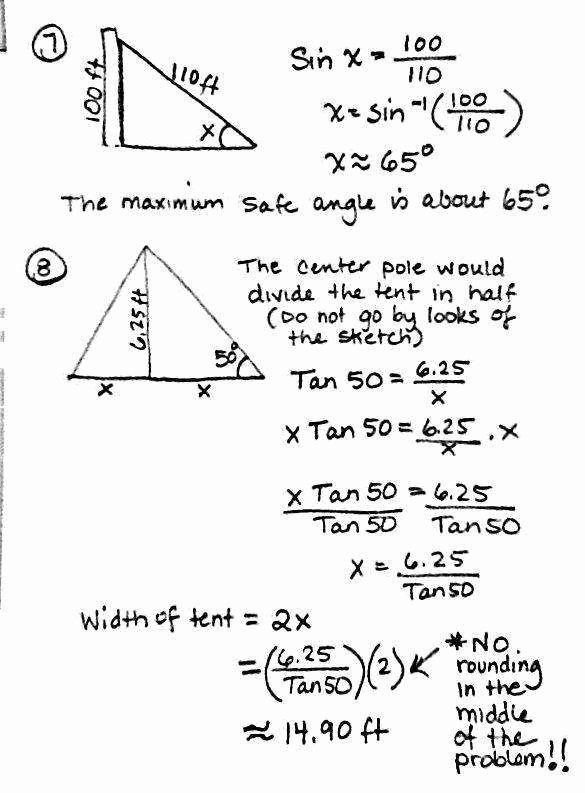 7
100 ft
110 ft
x
Sin x = 100/110
x = sin⁻¹(100/110)
x ≈ 65°
The maximum safe angle is about 65°.
8
6.25 ft
50°
x x
The center pole would
divide the tent in half
(Do not go by looks of
the sketch)
Tan 50 = 6.25/x
x Tan 50 = 6.25/x · x
x Tan 50/Tan 50 = 6.25/Tan 50
x = 6.25/Tan 50
Width of tent = 2x
= (6.25/Tan 50)(2)
≈ 14.90 ft
*NO
rounding
in the
middle
of the
problem!!